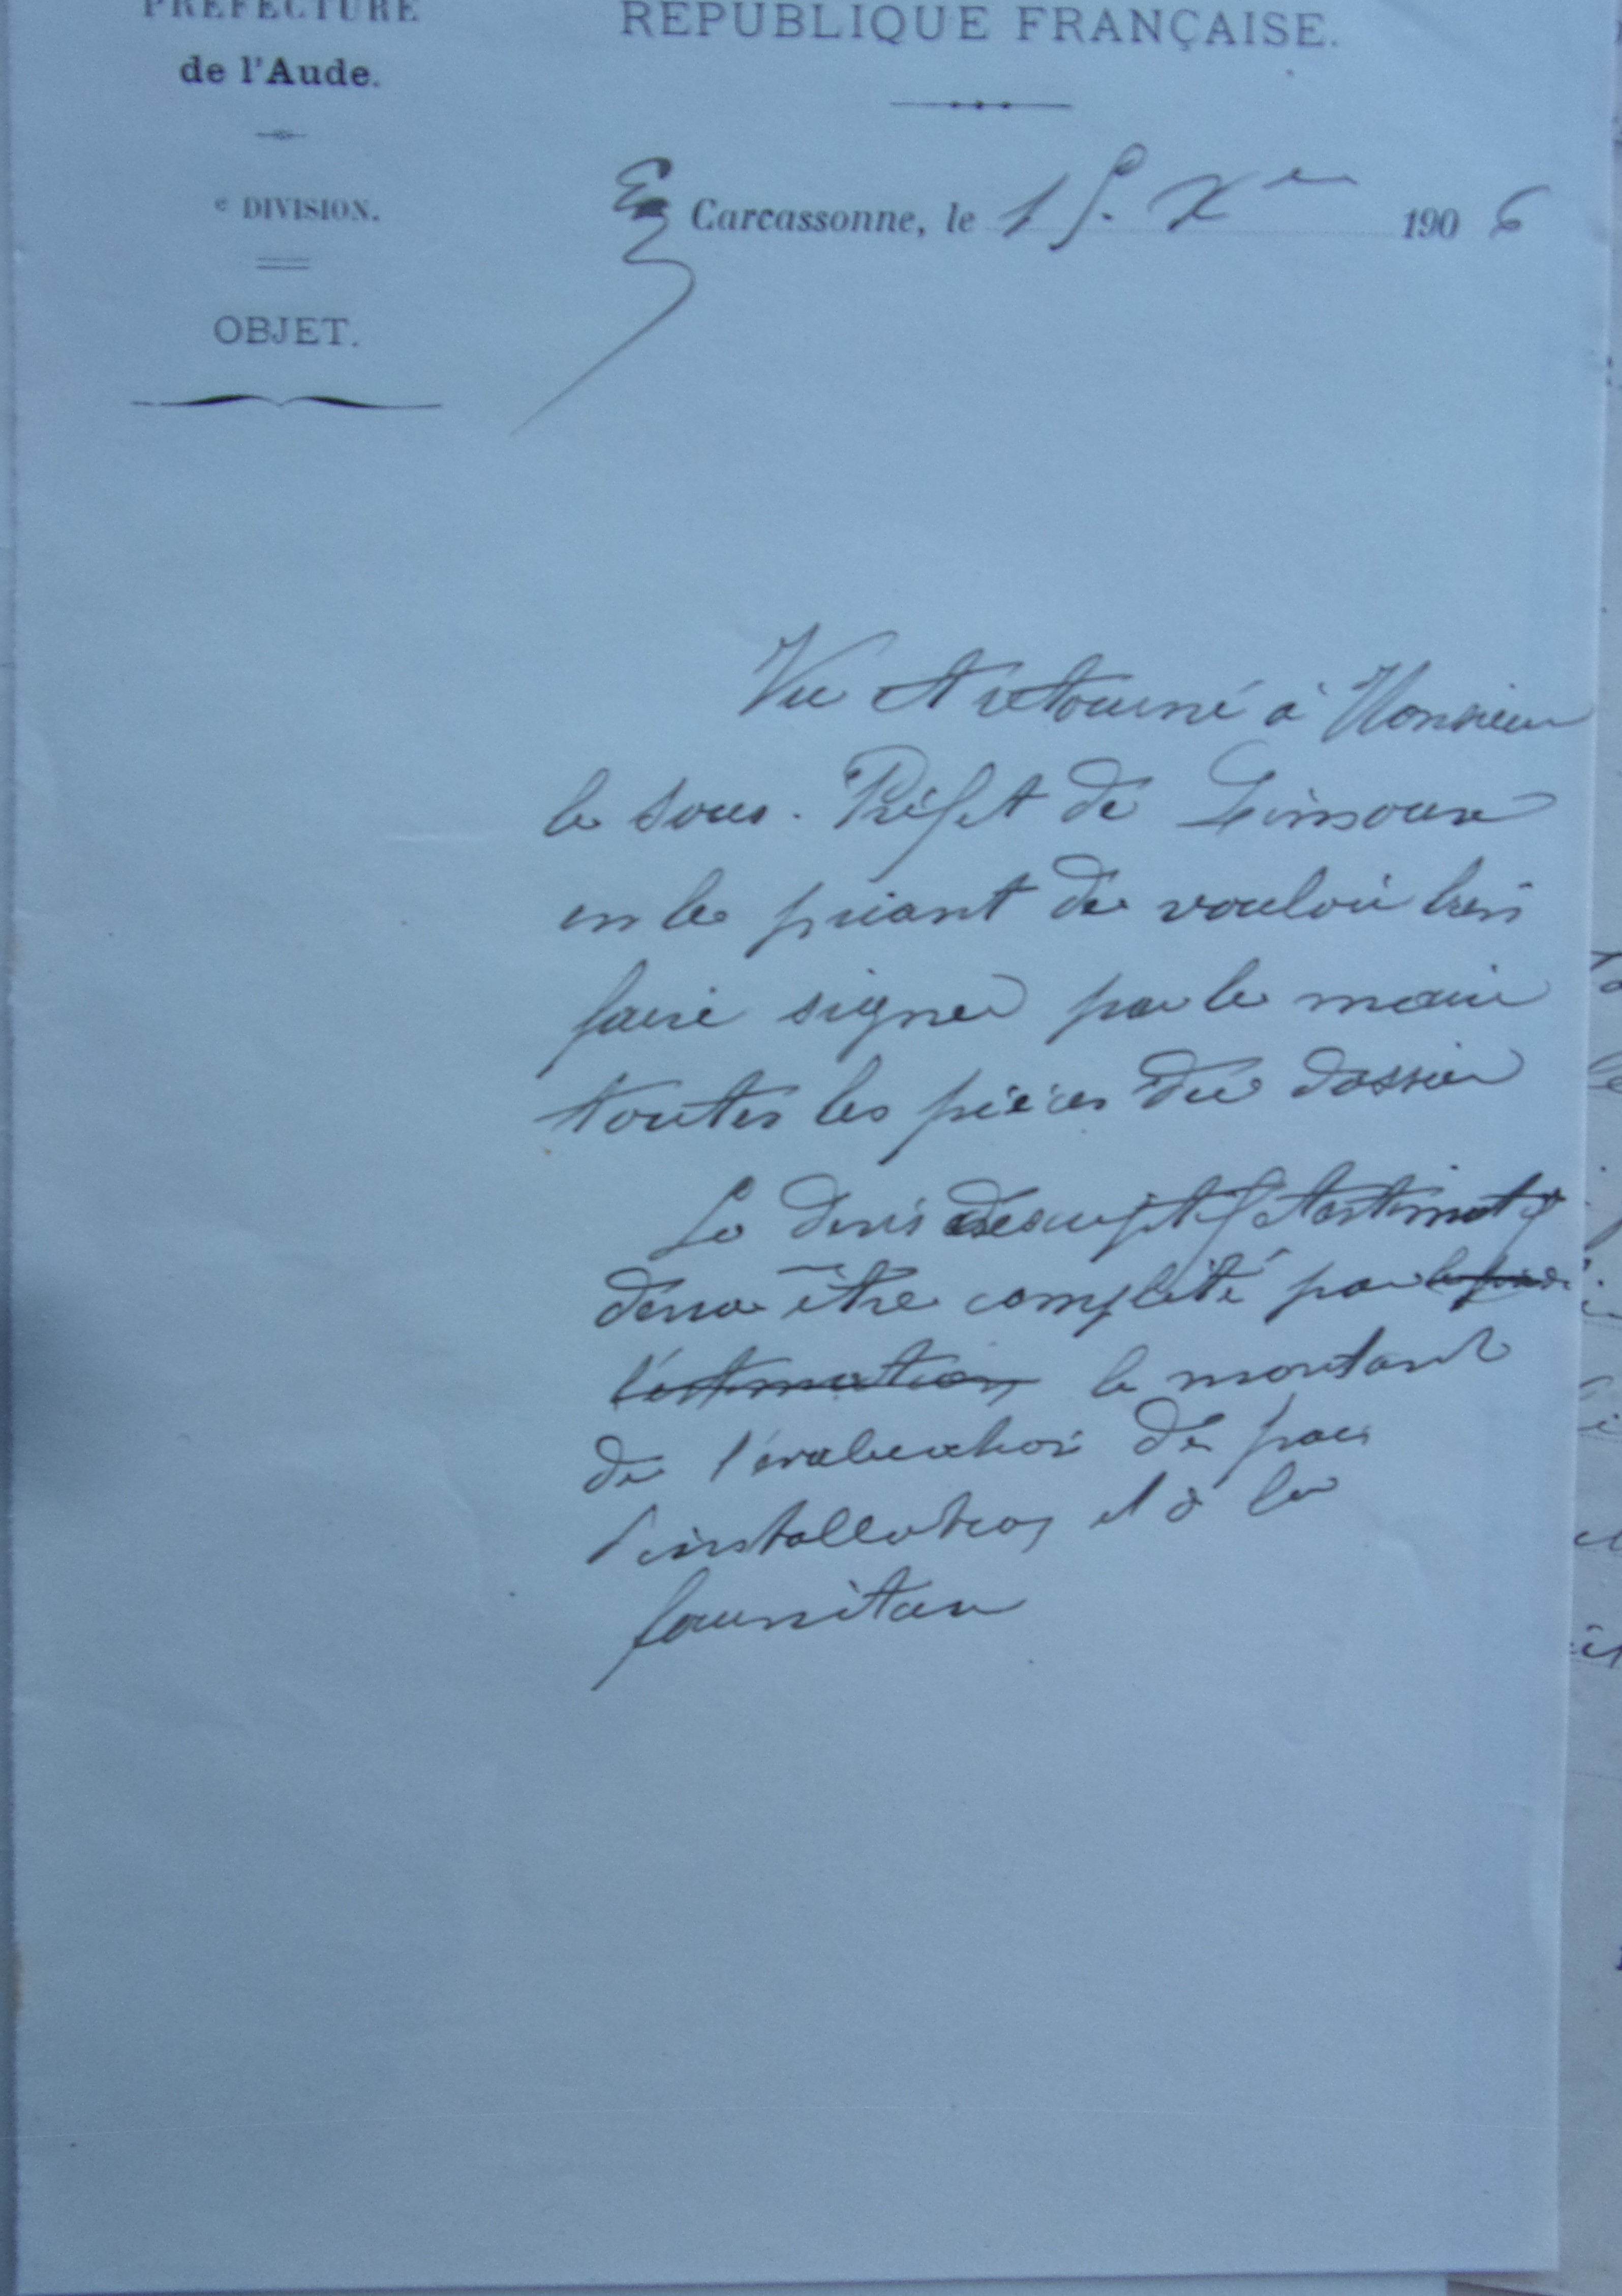 PRÉFECTURE
de l'Aude.
e DIVISION.
OBJET.
RÉPUBLIQUE FRANÇAISE.
Carcassonne, le 15 Xre 1906
Vu et retourné à Monsieur
le Sous-Préfet de Limoux
en le priant de vouloir bien
faire signer par le maire
toutes les pièces du dossier
Le devis descriptif et estimatif
devra être complété par
l'estimation le montant
de l'évaluation des frais
d'installation et de la
fourniture